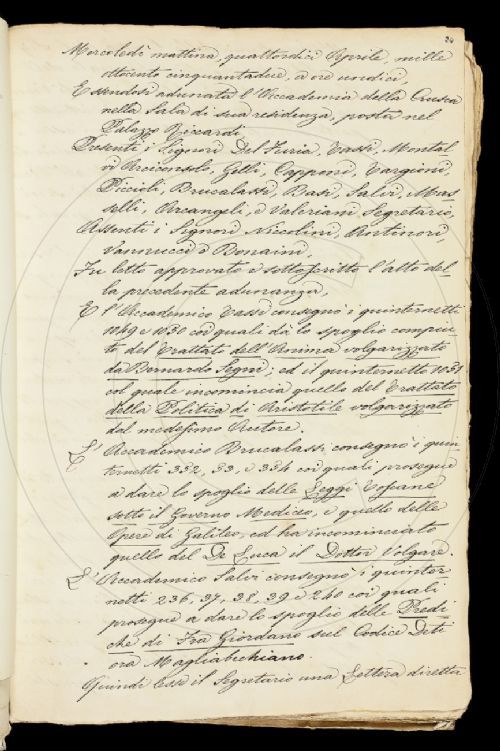 24
Mercoledì mattina, quattordici Aprile, mille
ottocento cinquantadue, a ore undici,
Essendosi adunata l'Accademia della Crusca
nella Sala di sua residenza, posta nel
Palazzo Riccardi,
Presenti i Signori Del Furia, Tassi, Montal
vi Arciconsolo, Gelli, Capponi, Targioni,
Piccioli, Brucalassi, Busi, Salvi, Mas_
selli, Arcangeli, e Valeriani Segretario,
Assenti i Signori Nicolini, Antinori,
Vannucci e Bonaini,
Fu letto approvato e sottoscritto l'atto del_
la precedente adunanza,
E l'Accademico Tassi consegnò i quinternetti
1049 e 1050 coi quali dà lo spoglio compiu_
to del Trattato dell'Anima volgarizzato
da Bernardo Segni; ed il quinternetto 1051
col quale incomincia quello del Trattato
della Politica di Aristotile volgarizzato
dal medesimo Autore.
L'Accademico Brucalassi consegnò i quin_
ternetti 332, 33, e 334 coi quali prosegue
a dare lo spoglio delle Leggi Toscane
sotto il Governo Mediceo, e quello delle
Opere di Galileo, ed ha incominciato
quello del De Luca il Dottor Volgare.
L'Accademico Salvi consegnò i quinter
netti 236, 37, 38, 39 e 240 coi quali
prosegue a dare lo spoglio delle Predi
che di Fra Giordano sul Codice Deti
ora Magliabechiano.
Quindi lesse il Segretario una Lettera diretta